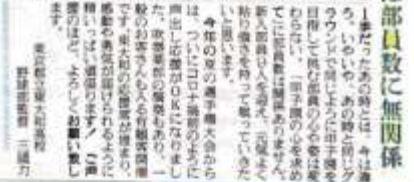 は部員数に無関係
ーまだったあの時とは、今は違
ろ。いやいや、あの時と同じグ
ラウンドで同じように甲子園を
目指して挑む部員の心の姿は変
わらない。「甲子園の心を求め
てに部員数は関係ありません。
新入部員9人を迎え、元気よく
粘り強さを持って戦っていきた
いと思います。
今年の夏の選手権大会から
は、ついにコロナ禍前のように
声出し応援がOKになりまし
た。吹奏楽部の演奏もあり、一
般のお客さんも入る有観客開催
です。東大和の応援席が埋まり、
感動や勇気が届けられるように
精いっぱい頑張ります！ご声
援のほど、よろしくお願い致し
ます。
東京都立東大和高校
野球部監督 三浦力